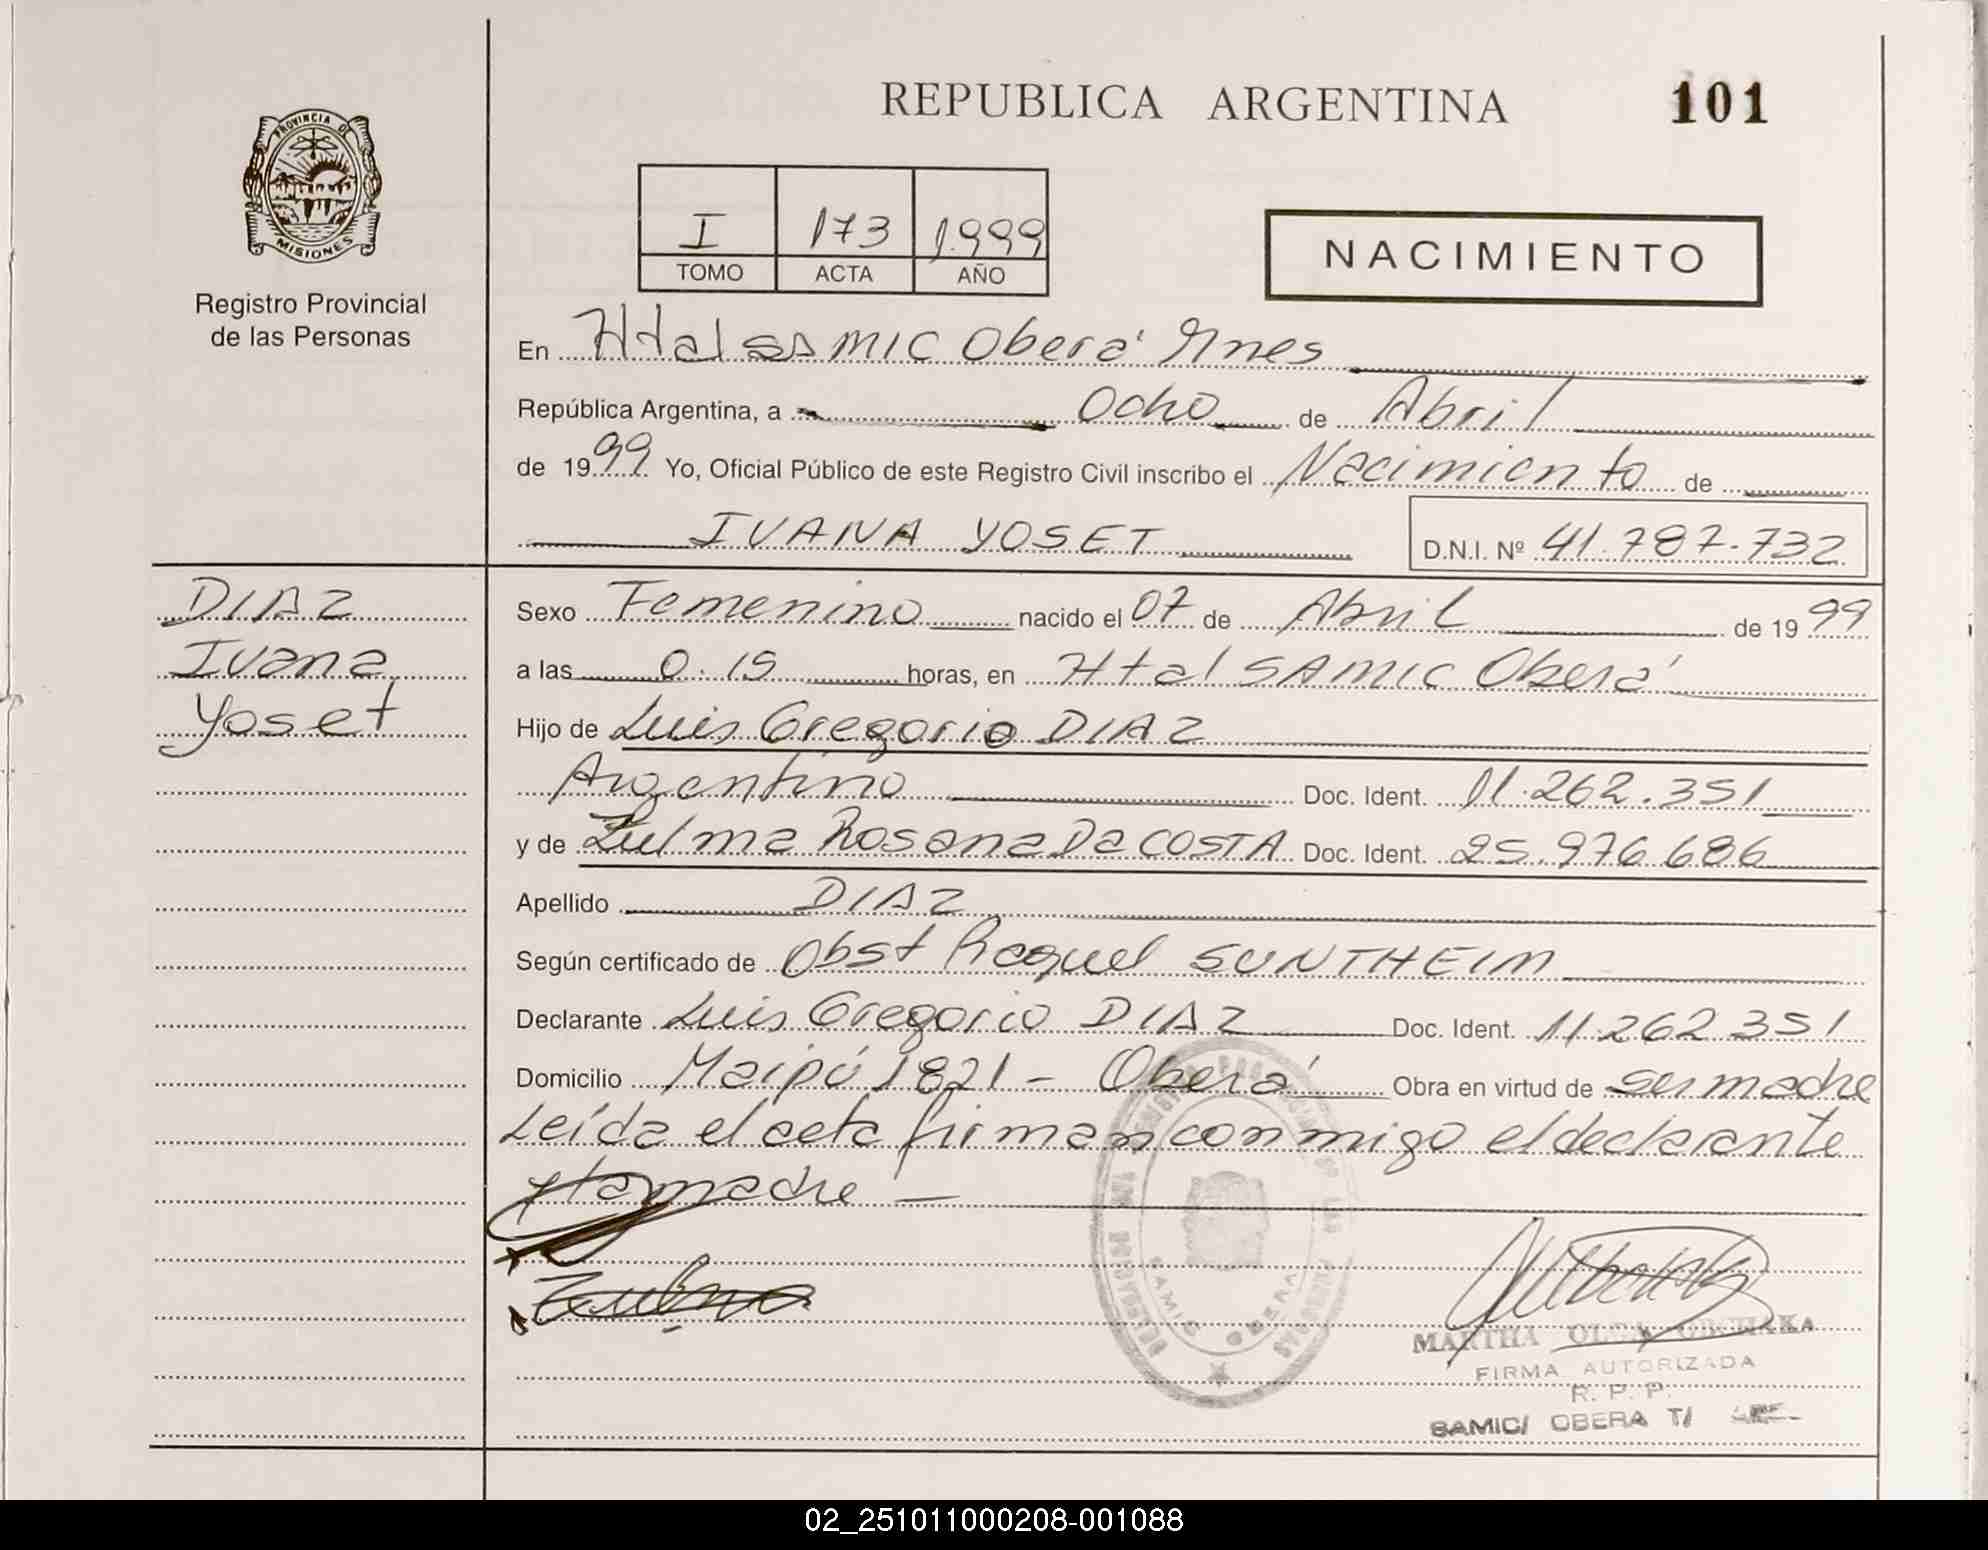 REPUBLICA ARGENTINA
101
PROVINCIA DE
MISIONES
Registro Provincial
de las Personas
I 173 1.999
TOMO ACTA AÑO
NACIMIENTO
En Htal SAMIC Oberá Mnes
República Argentina, a Ocho de Abril
de 1999 Yo, Oficial Público de este Registro Civil inscribo el Nacimiento de
IVANA YOSET D.N.I. Nº 41.787.732
DIAZ
Ivana
Yoset
Sexo Femenino nacido el 07 de Abril de 1999
a las 0.15 horas, en Htal SAMIC Oberá
Hijo de Luis Gregorio DIAZ
Argentino Doc. Ident. 11.262.351
y de Zulma Rosana Da COSTA Doc. Ident. 25.976.686
Apellido DIAZ
Según certificado de Obst Raquel SUNTHEIM
Declarante Luis Gregorio DIAZ Doc. Ident. 11.262.351
Domicilio Maipú 1821 - Oberá Obra en virtud de ser madre
Leída el acta firman conmigo el declarante
y la madre -
Zulma
SAMIC OBERA
MARTHA OLGA
FIRMA AUTORIZADA
R. P. P.
SAMIC/ OBERA T/
02_251011000208-001088